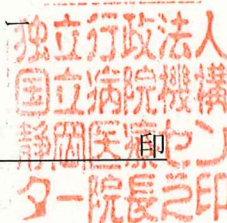 独立行政法人
国立病院機構
静岡医療セン
ター院長之印
印